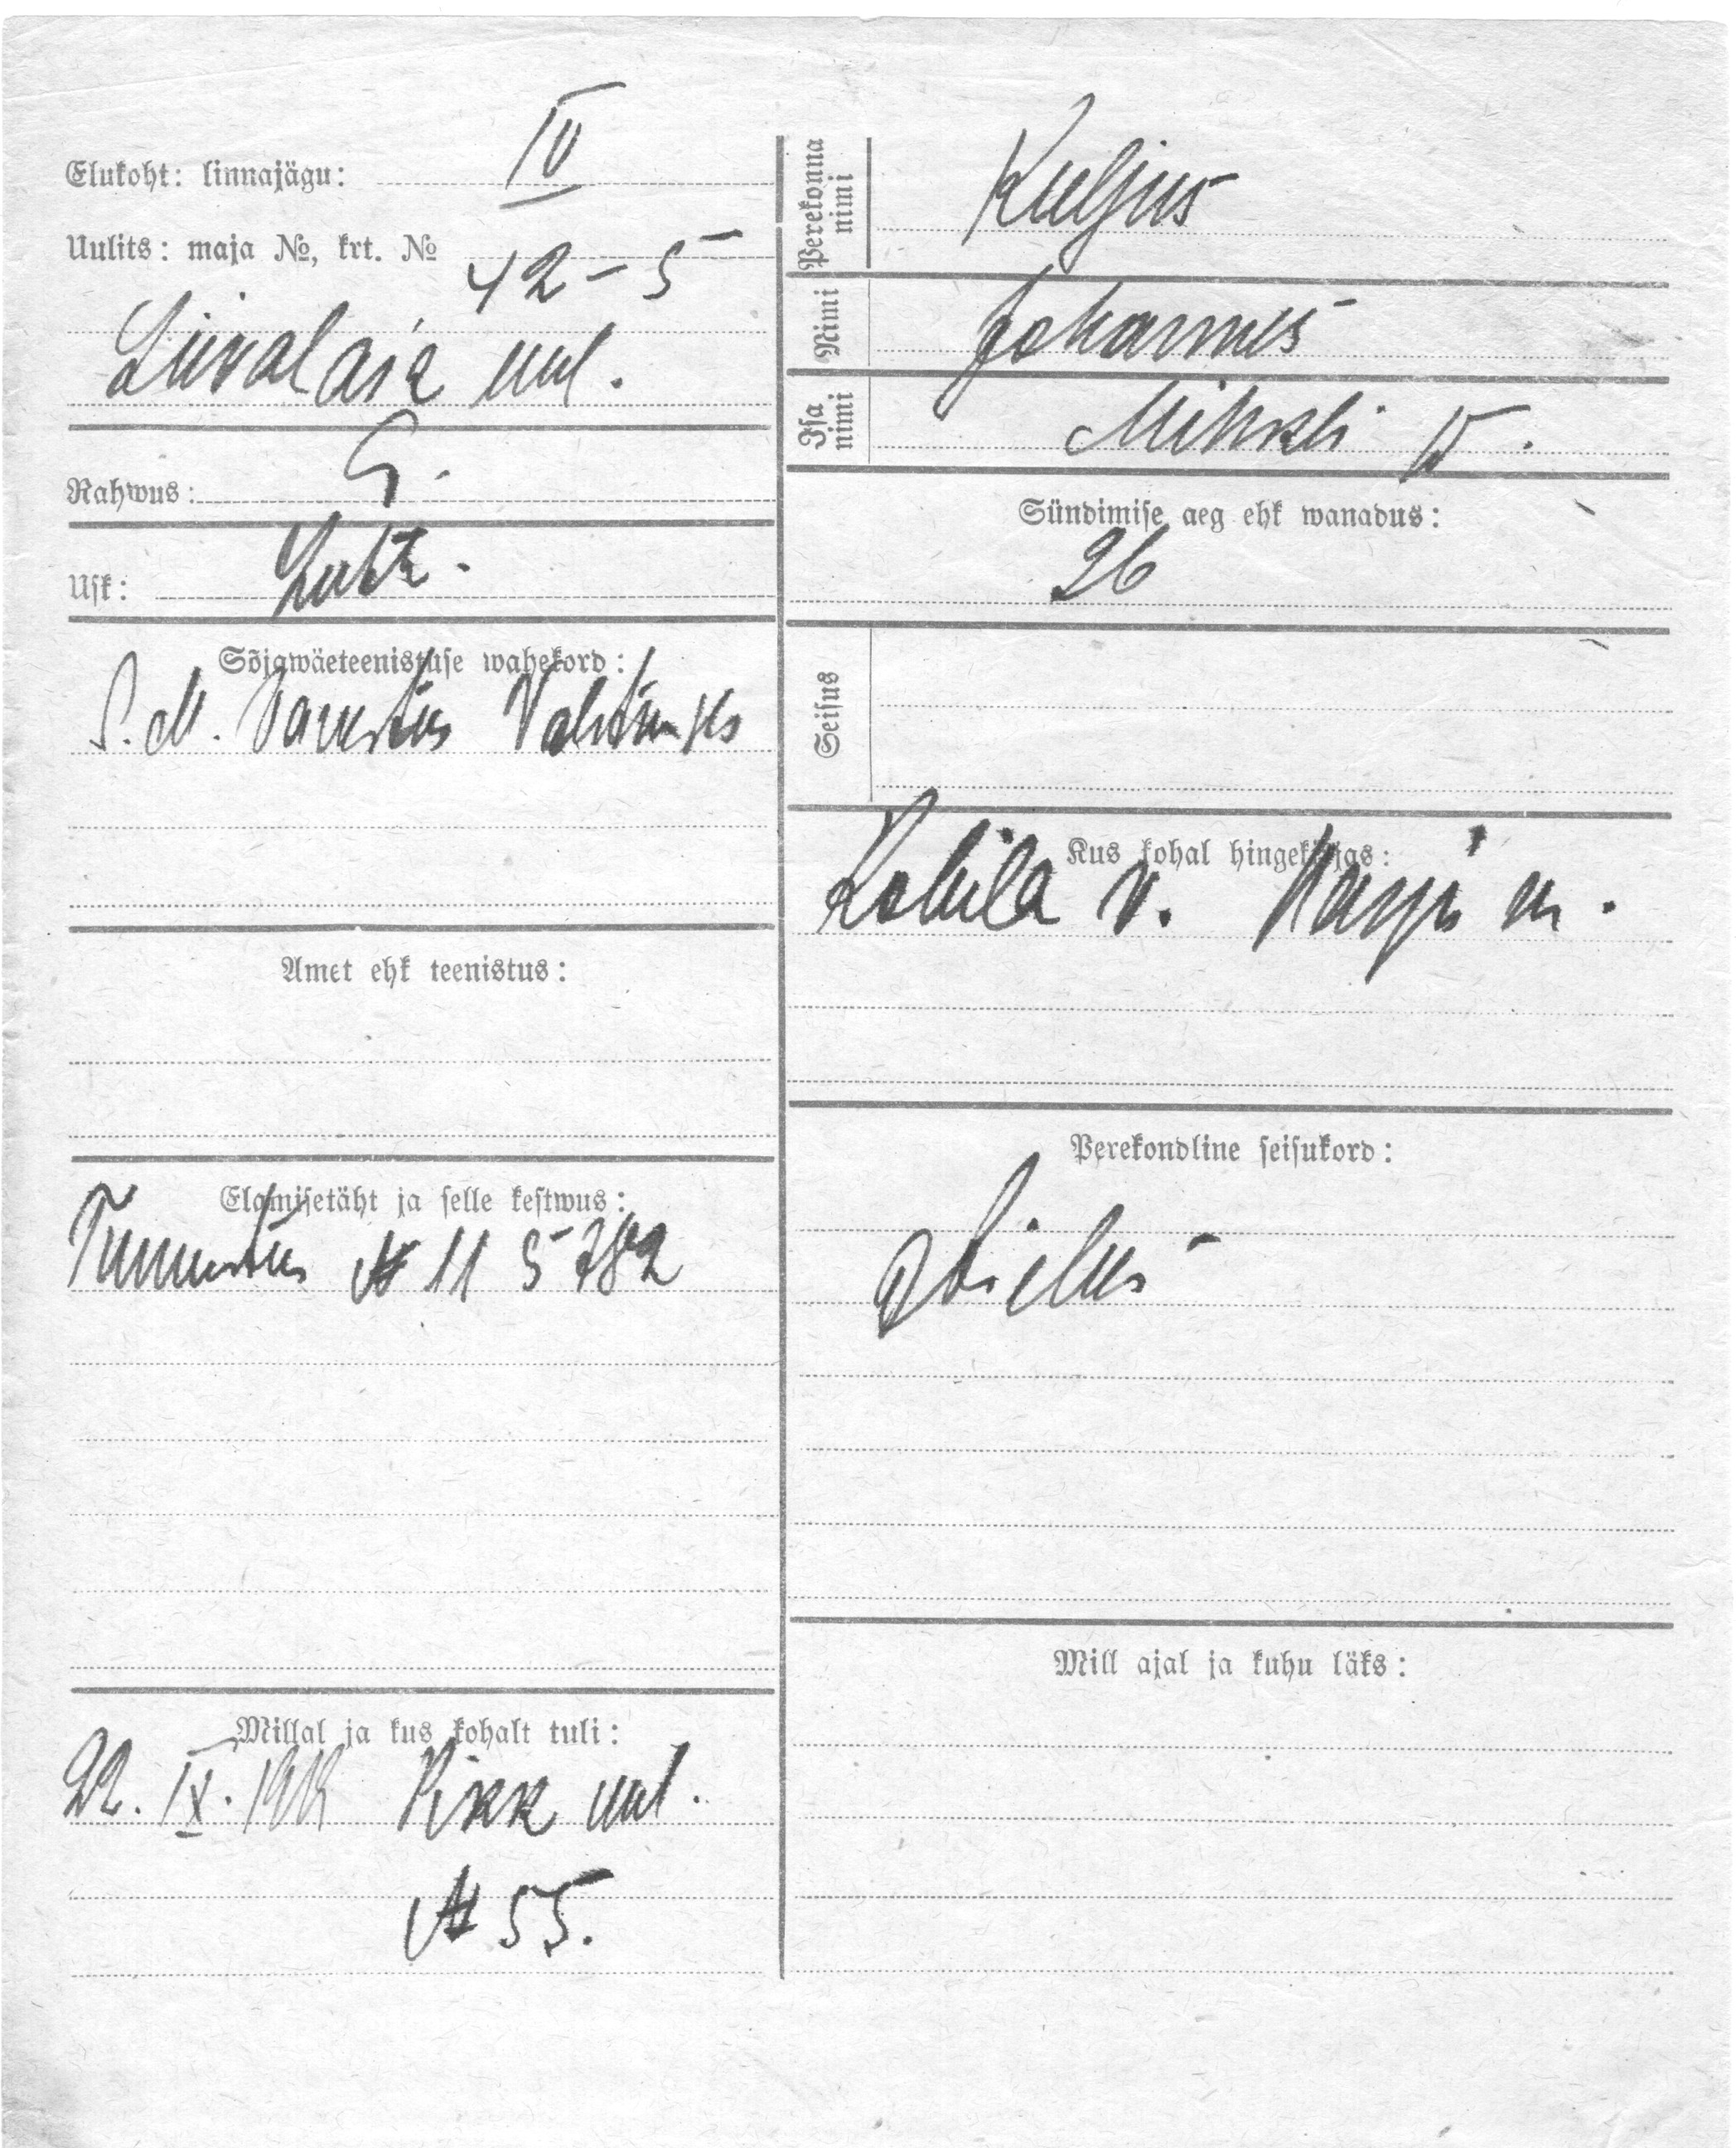 Elukoht: linnajägu: IV
Uulits: maja №, krt. № 42-5
Liivalaia uul.
Rahwus:
Usk: Luth.
Sõjawäeteenistuse wahekord:
S. M.
Amet ehk teenistus:
Elamisetäht ja selle kestwus:
Tunnistus № 11 5782
Millal ja kus kohalt tuli:
22. IX. 1919 Pikk uul.
№ 55.
Perekonna nimi Kuljus
Nimi Johannes
Isa nimi Mihkli p.
Sündimise aeg ehk wanadus:
26
Seisus
Kus kohal hingekirjas:
Kohila v. Harju m.
Perekondline seisukord:
Abielus
Mill ajal ja kuhu läks: